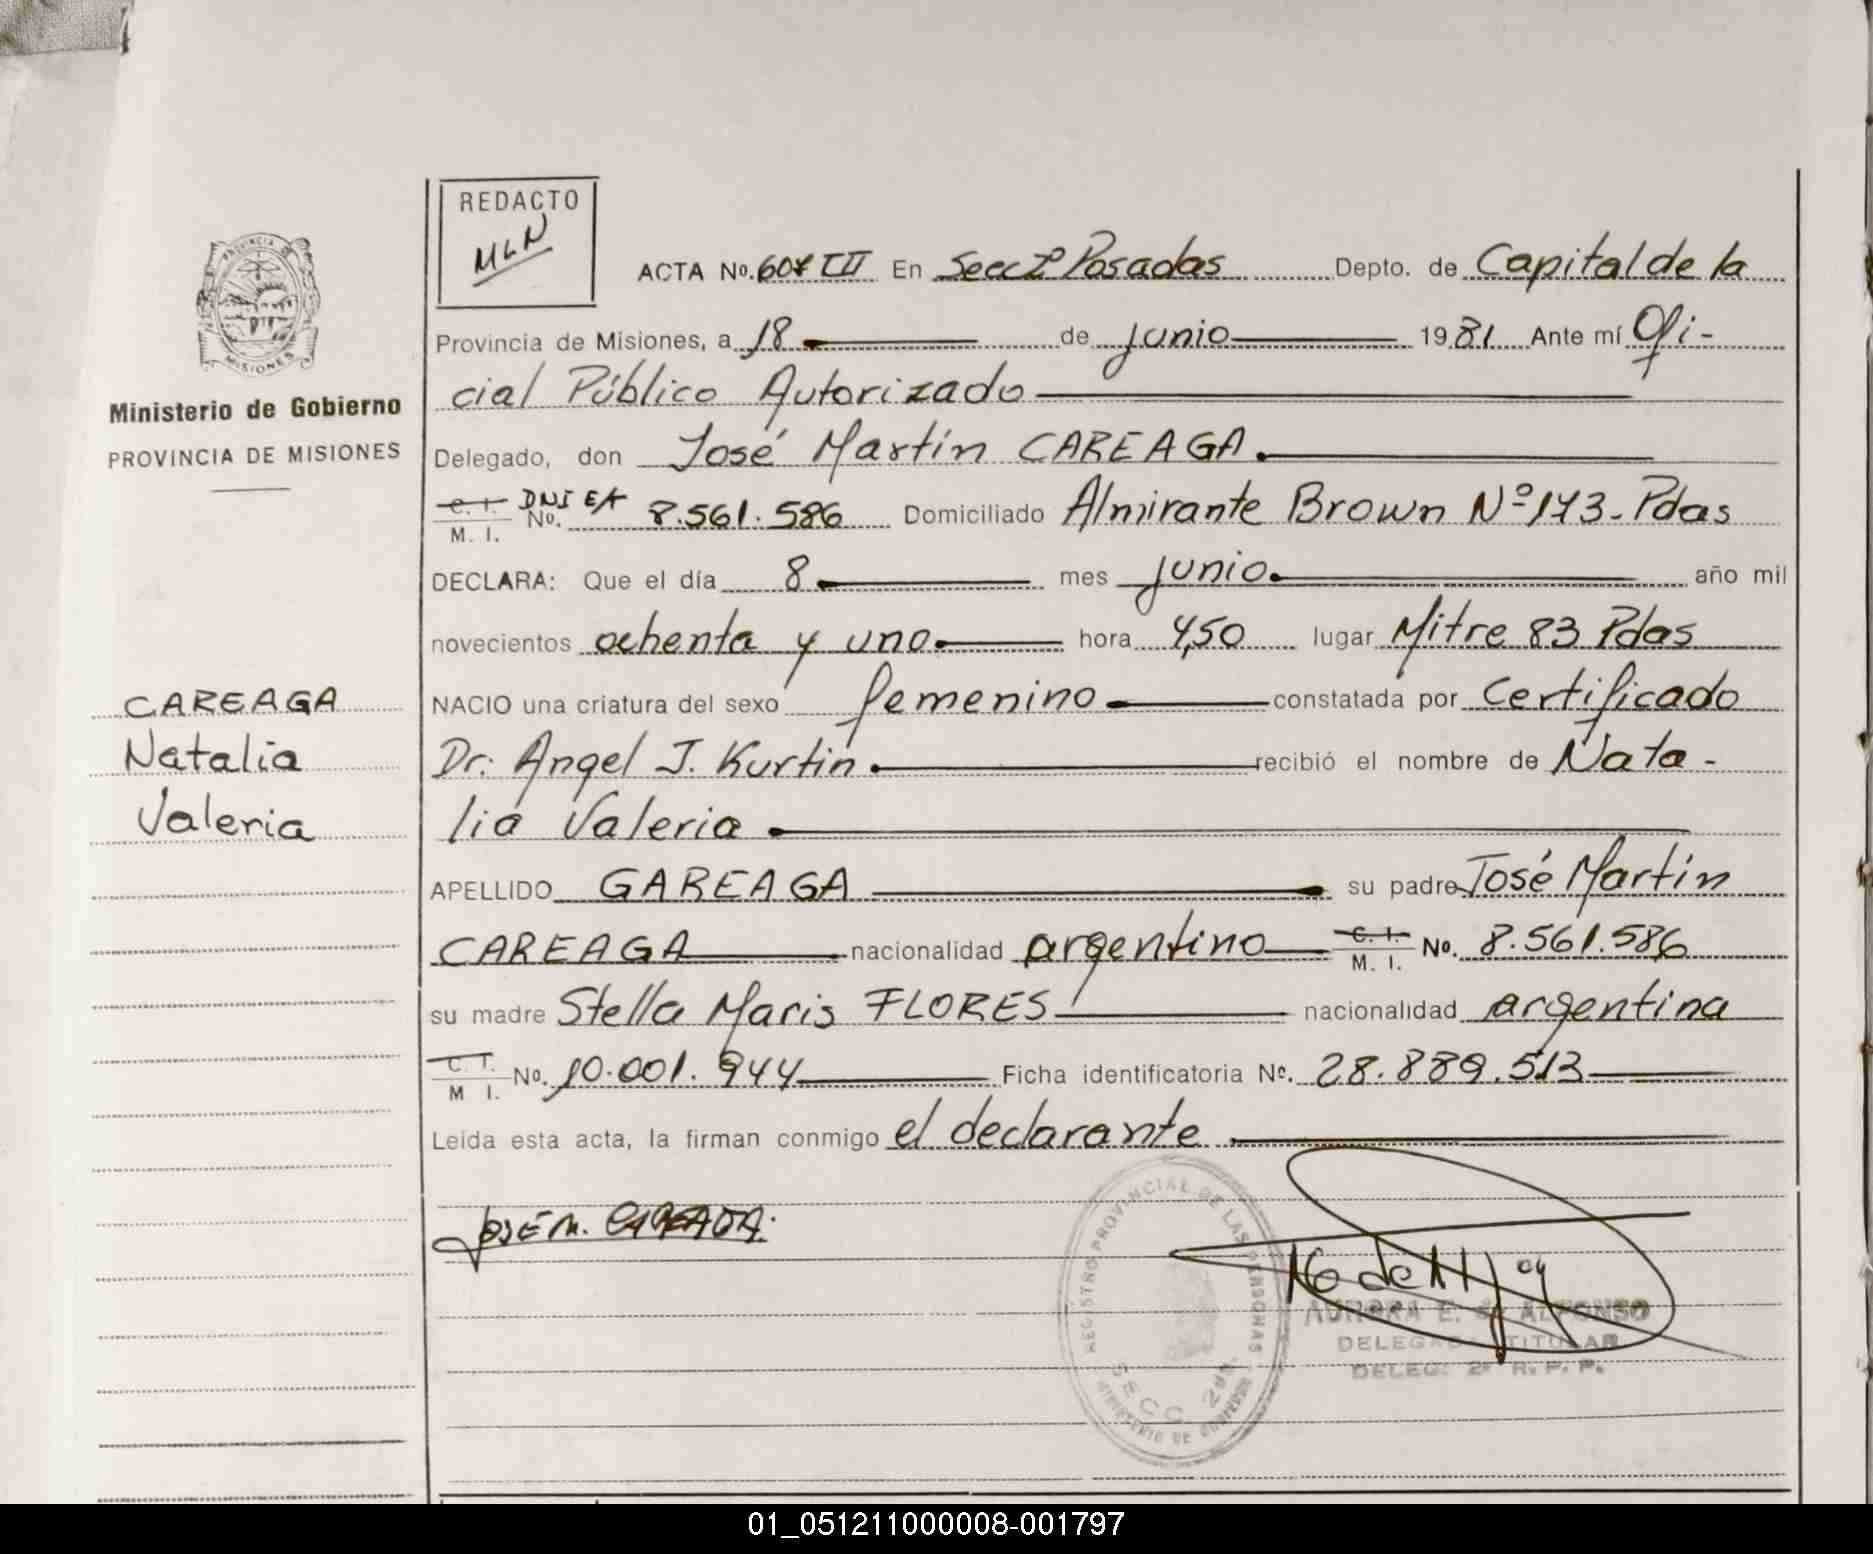 REDACTO
MLN
PROVINCIA DE
MISIONES
Ministerio de Gobierno
PROVINCIA DE MISIONES
CAREAGA
Natalia
Valeria
ACTA No. TII En Secc 2º Posadas Depto. de Capital de la
Provincia de Misiones, a 18 de junio 1981 Ante mí Ofi-
cial Público Autorizado
Delegado, don José Martín CAREAGA.
C. I. M. I. DNI E/t No. 8.561.586 Domiciliado Almirante Brown Nº 143 - Pdas
DECLARA: Que el día 8 mes junio año mil
novecientos ochenta y uno hora 4,50 lugar Mitre 83 Pdas
NACIO una criatura del sexo femenino constatada por Certificado
Dr. Angel J. Kurtin recibió el nombre de Nata-
lia Valeria
APELLIDO GAREAGA su padre José Martín
CAREAGA nacionalidad argentino C. I. M. I. No. 8.561.586
su madre Stella Maris FLORES nacionalidad argentina
C. I. M I. No. 10.001.944 Ficha identificatoria No. 28.889.513
Leída esta acta, la firman conmigo el declarante
JOSÉ M. CAREAGA.
REGISTRO PROVINCIAL DE LAS PERSONAS
SECC. 2da.
MINISTERIO DE GOBIERNO
AURORA E. ALFONSO
DELEGADA TITULAR
DELEG. 2ª R. P. P.
01_051211000008-001797